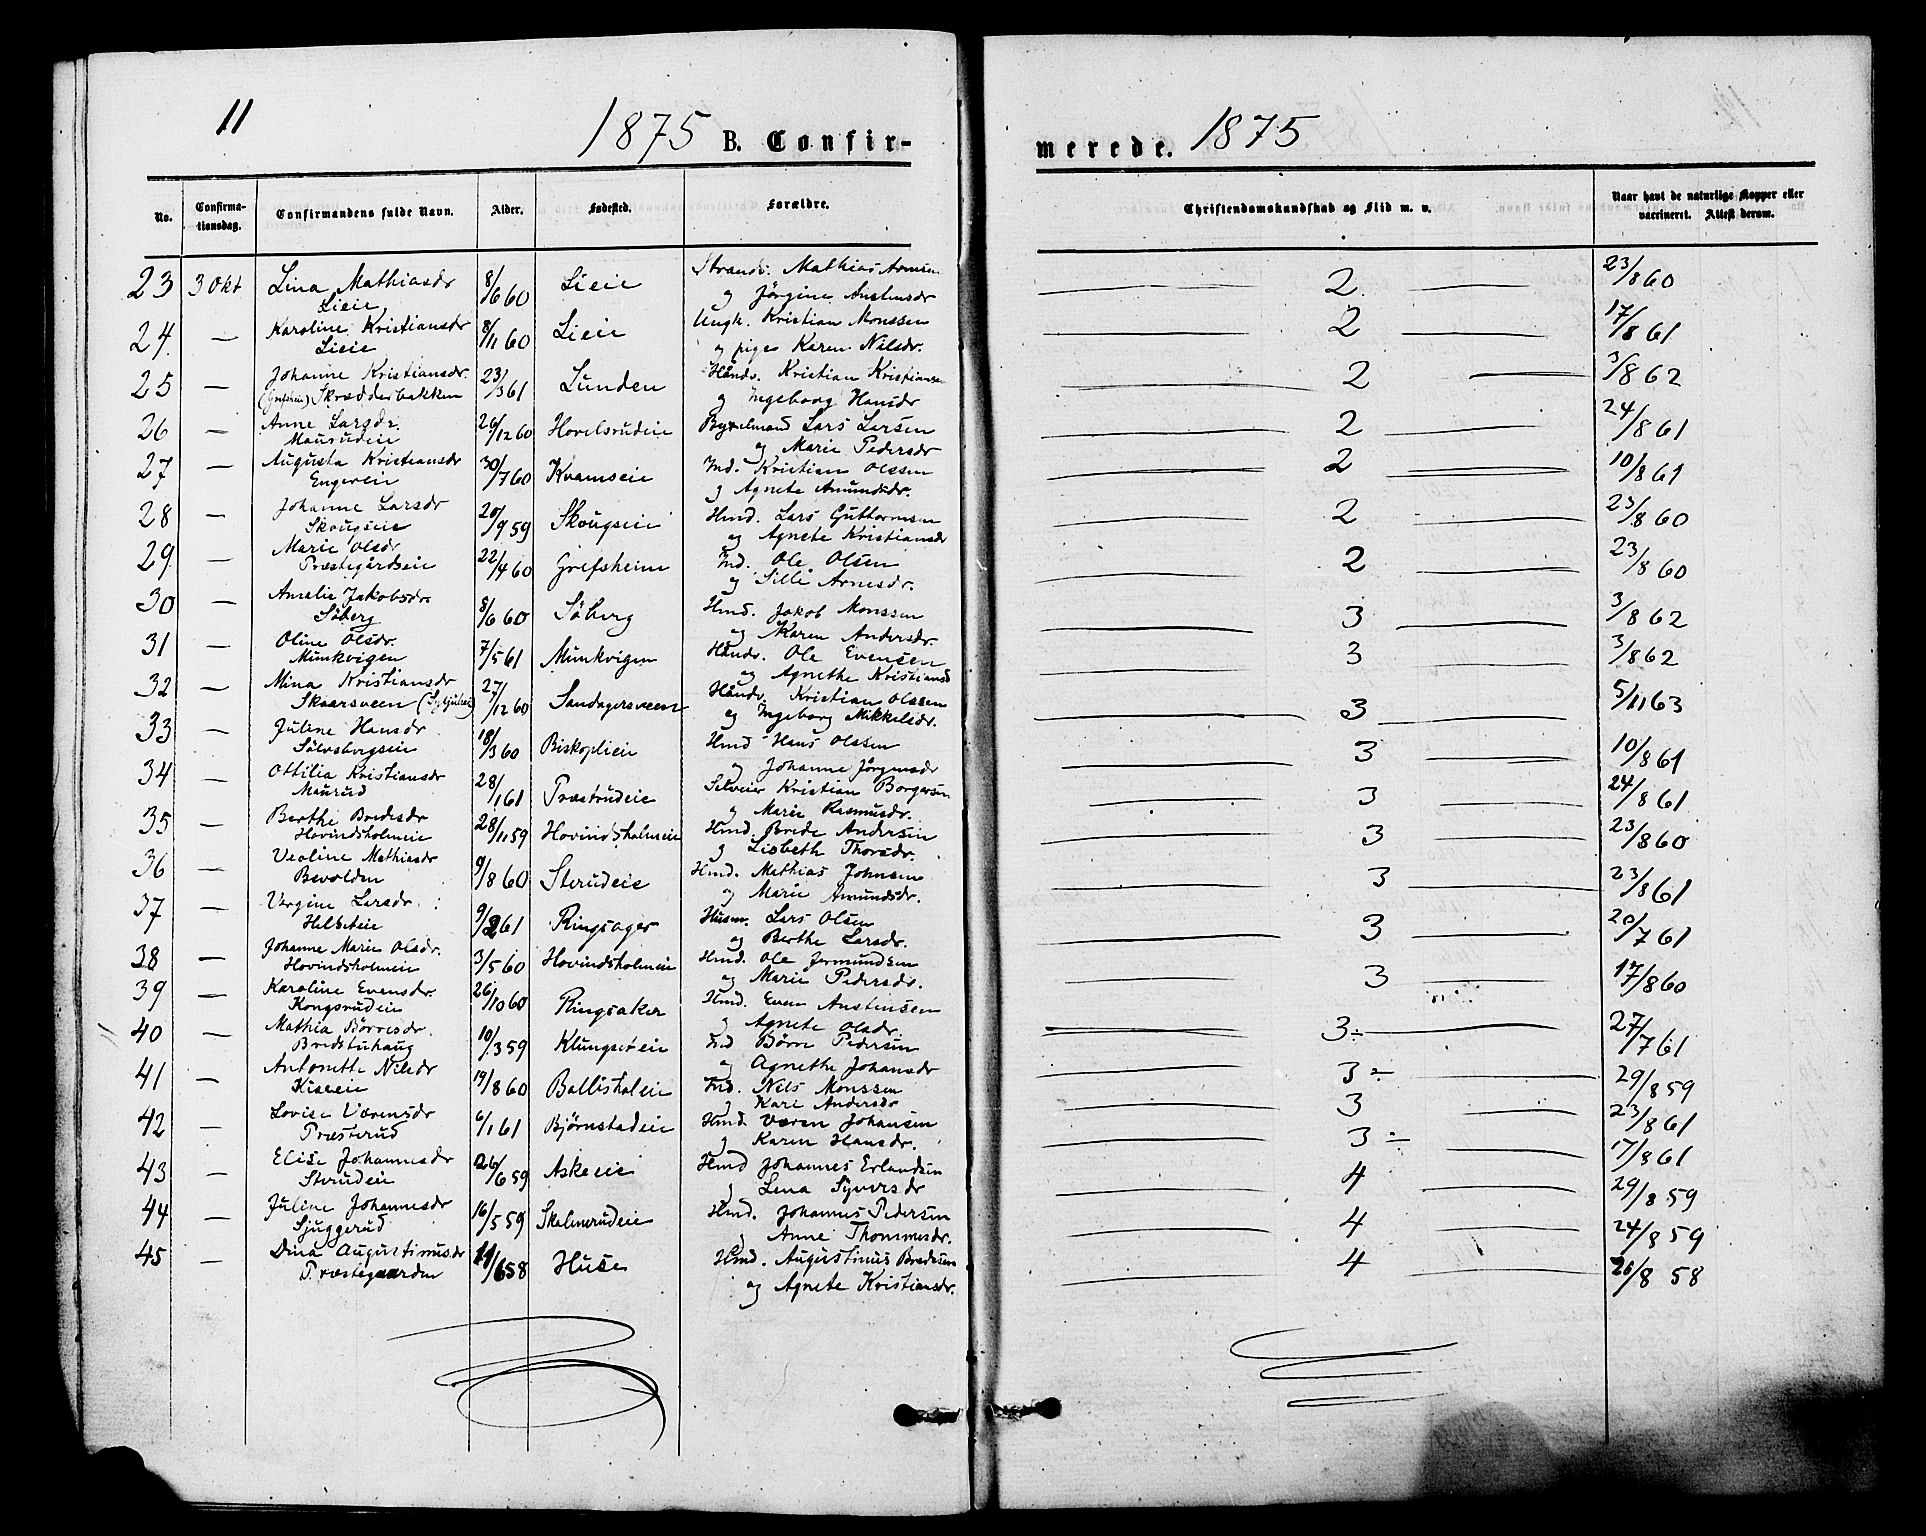 11
1875 B. Confir-
merede. 1875
No. Confirma-tionsdag. Confirmandens fulde Navn. Alder. Fødested. Forældre.
Christendomskundskab og Flid m. v. Naar havt de naturlige Kopper eller vaccineret. Attest derom.
23 3 Okt Lina Mathiasdr 8/6 60 Lieie Strands. Mathias Arnesen 2 23/8 60
Lieie og Jörgine Austensdr
24. — Karoline Kristiansdr 8/11 60 Lieie Ungk. Kristian Monssen 2 17/8 61
Lieie og pige Karen Nilsdr.
25 — Johanne Kristiansdr. 23/3 61 Lunden Håndv. Kristian Kristiansen 2 3/8 62
(Grefsheim) Skrædderbakken og Ingeborg Hansdr
26 — Anne Larsdr. 26/12 60 Hovelsrudeie Lars Larsen 2 24/8 61
Mausudeie og Marie Pedersdr
27 — Augusta Kristiansdr 30/7 60 Kvamseie Ind. Kristian Olssen 2 10/8 61
Engereie g Agnete Amundsdr.
28 — Johanne Larsdr 20/9 59 Skougseie Hmd. Lars Guttormsen 2 23/8 60
Skougseie og Agnete Kristiansdr
29. — Marie Olsdr 22/4 60 Grefsheim Ind. Ole Olsen 2 23/8 60
Præstegårdseie og Silli Arnesdr.
30 — Amalie Jakobsdr. 8/6 60 Söberg Hmd. Jakob Monssen 3 3/8 62
Söberg og Karen Andersdr.
31 — Oline Olsdr. 7/5 61 Munkvigen Håndv. Ole Evensen 3 3/8 62
Munkvigen og Agnethe Kristiansd
32 — Mina Kristiansdr 27/12 60 Sandagersveen Håndv Kristian Olssen 3 5/11 63
Skaarsveen og Ingeborg Mikkelsdr.
33 — Juline Hansdr 18/3 60 Biskoplieie Hmd Hans Olssen 3 10/8 61
Sölvsbergseie og Johanne Jörgensdr
34 — Ottilia Kristiansdr 28/1 61 Præstrudeie Selveier Kristian Borgersen 3 24/8 61
Maurud og Marie Rasmusdr.
35 — Berthe Bredesdr 28/11 59 Hovindsholmeie Hmd. Brede Andersen 3 23/8 60
Hovindsholmeie g Lisbeth Thorsdr.
36 — Veoline Mathiasdr 9/8 60 Sterudeie Hmd. Mathias Johnsen 3 23/8 61
Bevolden og Marie Amundsdr.
37 — Vergine Larsdr. 9/2 61 Ringsager Husm. Lars Olsen 3 20/7 61
Helsteie og Berthe Larsdr.
38 — Johanne Marie Olsdr. 3/5 60 Hovindsholmeie Hmd. Ole Jermundsen 3 17/8 60
Hovindsholmeie og Marie Pedersdr.
39 — Karoline Evensdr. 26/10 60 Ringsaker Hmd. Even Austensen 3÷ 27/7 61
Kongsrudeie og Agnete Olsdr.
40 — Mathia Börresdr. 10/3 59 Klungseteie Ind Börre Pedersen 3÷ 29/8 59
Bredstuhaug og Agnethe Johansdr
41 — Antonette Nilsdr 19/8 60 Ballisholeie Ind. Nils Monssen 3 23/8 61
Kiseeie g Kari Andersdr
42 — Lovise Værensdr 6/1 61 Björnstadeie Hmd Væren Johansen 3÷ 17/8 61
Præsterud g Karen Hansdr.
43 — Elise Johannesdr 26/6 59 Askeeie Hmd Johannes Erlandsen 4 29/8 59
Sterudeie g Lena Syversdr
44 — Juline Johannesdr 16/5 59 Skalmerudeie Hmd. Johannes Pedersen 4 24/8 59
Sjuggerud g Anne Thommesdr.
45 — Dina Augustinusdr 11/6 58 Huse Hmd. Augustinus Bredesen 4 26/8 58
Præstegaarden og Agnete Kristiansdr.